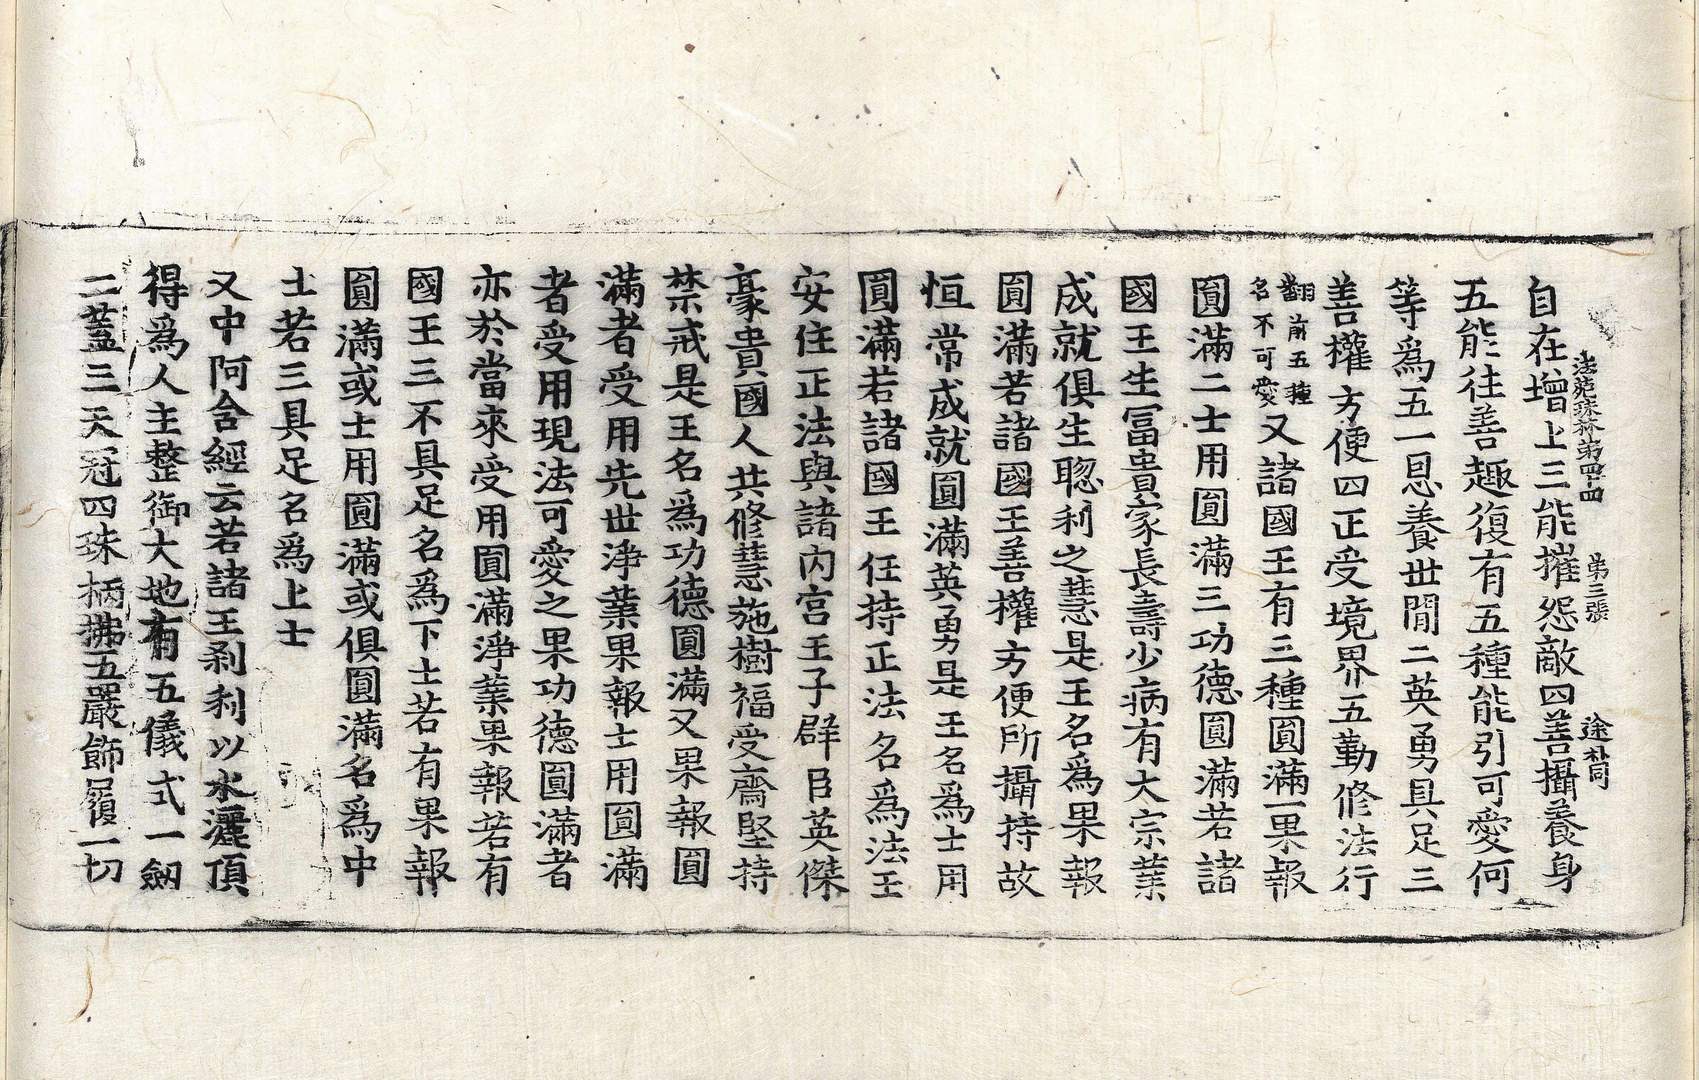 法苑珠林第四十四 第三張 途 朴同
自在增上三能摧怨敵四善攝養身
五能往善趣復有五種能引可愛何
等爲五一恩養世間二英勇具足三
善權方便四正受境界五勤修法行
翻前五種名不可愛又諸國王有三種圓滿一果報
圓滿二士用圓滿三功德圓滿若諸
國王生冨貴家長壽少病有大宗葉
成就俱生聦利之慧是王名爲果報
圓滿若諸國王善權方便所攝持故
恒常成就圓滿英勇是王名爲士用
圓滿若諸國王任持正法名爲法王
安住正法與諸內宮王子群臣英傑
豪貴國人共修慧施樹福受齋堅持
禁戒是王名爲功德圓滿又果報圓
滿者受用先世淨業果報士用圓滿
者受用現法可愛之果功德圓滿者
亦於當來受用圓滿淨業果報若有
國王三不具足名爲下士若有果報
圓滿或士用圓滿或俱圓滿名爲中
士若三具足名爲上士
又中阿含經云若諸王剎利以水灑頂
得爲人主整御大地有五儀式一劒
二蓋三天冠四珠柄拂五嚴飾屣一切